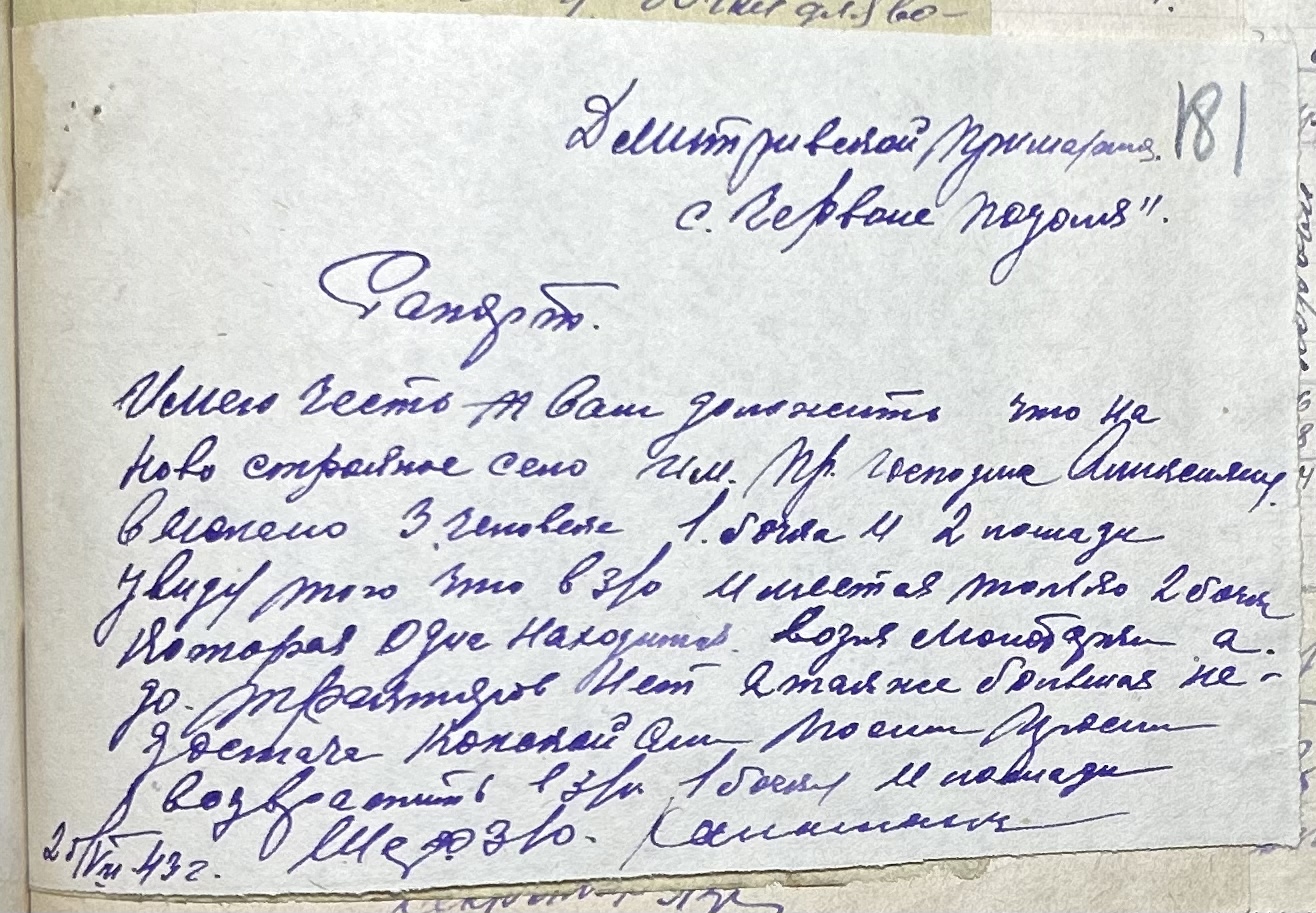 бочки для во-
Дмитривской Примарии
181
с. Червоне Подоля".
Рапорт.
Имею честь Вам доложить что на
ново стройное село им. Пр. Господина
взложено 3 человека 1. бочка и 2 лошади
у виду того что в з/о имеется только 2 бочки
которая одна находится возля молотарки а.
до. тракторов нет а также большая не-
достача конской силы просим
возвратить в з/о 1 бочку и лошади
25/VII 43 г. Шеф з/о.